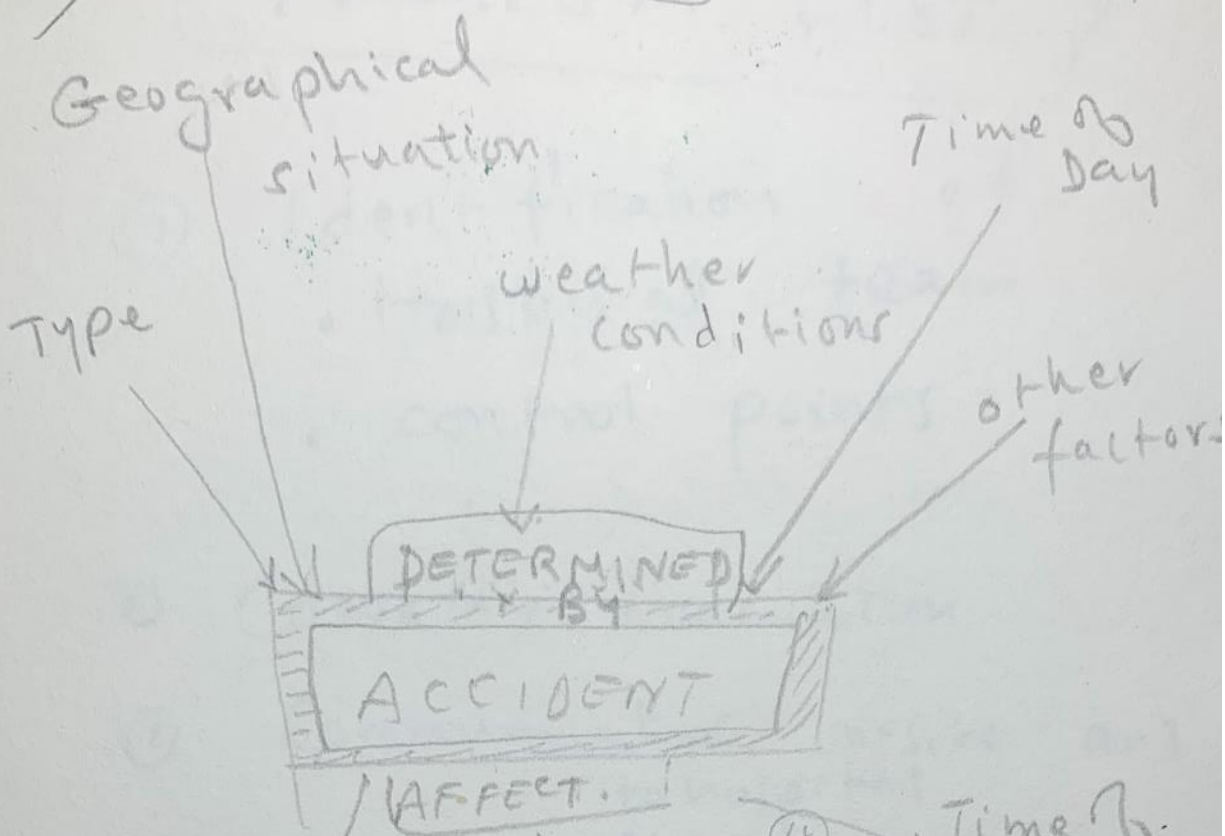 Geographical
situation
Time of
Day
weather
conditions
Type
other
factors
DETERMINED
BY
ACCIDENT
AFFECT.
Time of